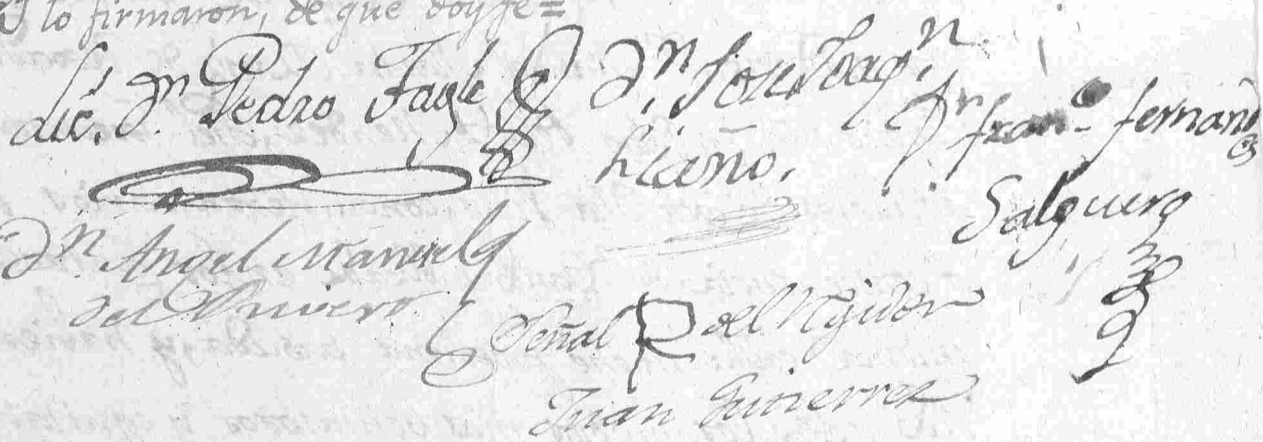 lo firmaron, de que doy fe=
Lic. Dn. Pedro Tagle
Dn. Josef Joaqn.
Liaño.
Dn. Franco. Fernand
Salguero
Dn. Angel Manuel
del Rivero
Señal del Rejidor
Juan Gutierrez